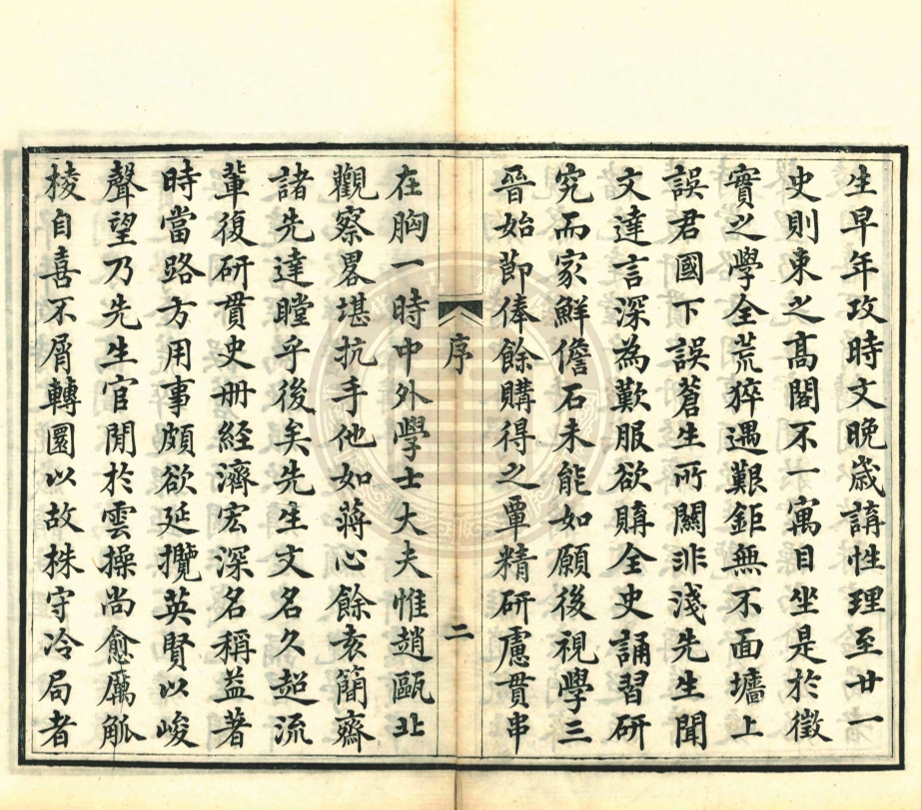 生早年攻時文晚歲講性理至廿一
史則束之高閣不一寓目坐是於徵
實之學全荒猝遇艱鉅無不面墻上
誤君國下誤蒼生所關非淺先生聞
文達言深為歎服欲購全史誦習研
究而家鮮儋石未能如願後視學三
晉始節俸餘購得之覃精研慮貫串
序
二
在胸一時中外學士大夫惟趙甌北
觀察畧堪抗手他如蔣心餘袁簡齋
諸先達瞠乎後矣先生文名久超流
輩復研貫史册經濟宏深名稱益著
時當路方用事頗欲延攬英賢以峻
聲望乃先生官閒於雲操尚愈厲觚
棱自喜不屑轉圜以故株守冷局者